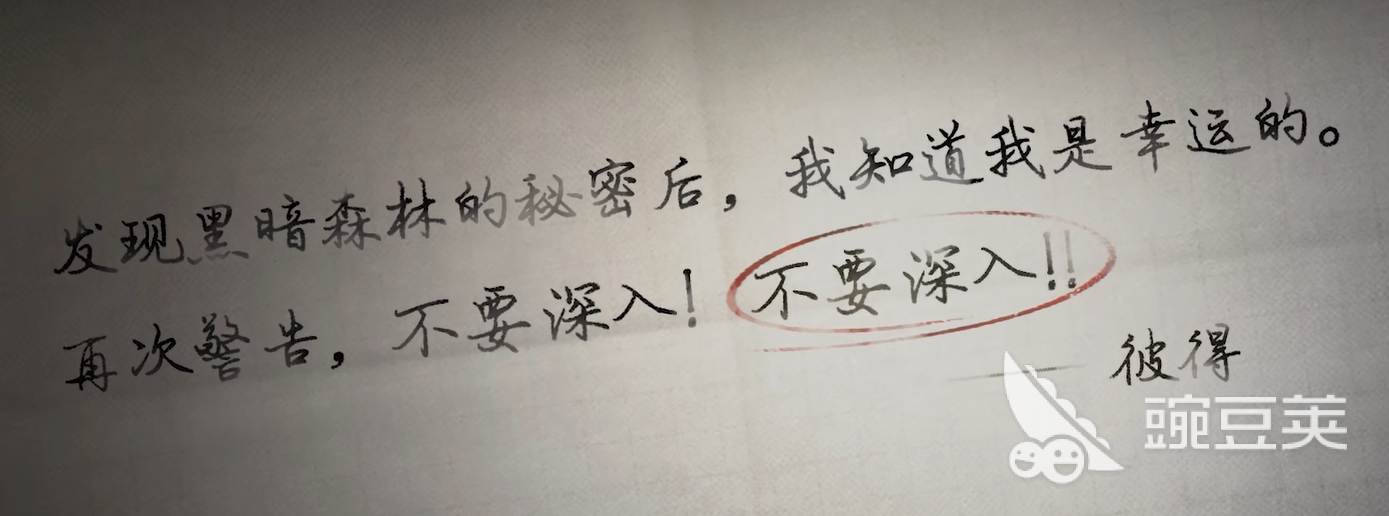 发现黑暗森林的秘密后，我知道我是幸运的。
再次警告，不要深入！不要深入！！
——彼得
豌豆荚